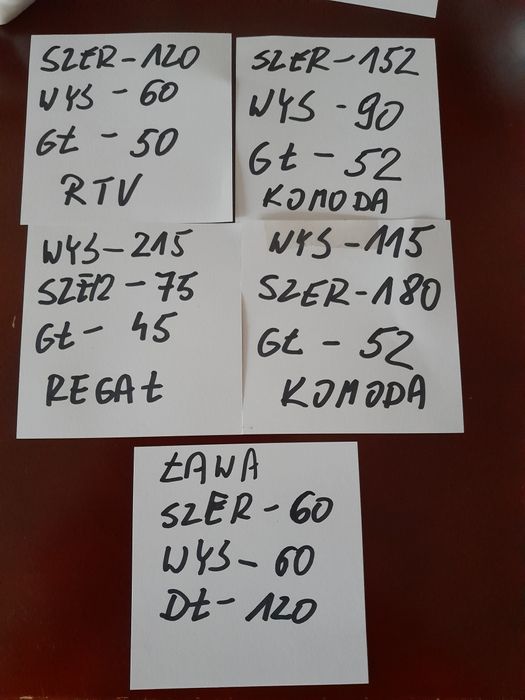 SZER-120
WYS-60
GŁ-50
RTV
SZER-152
WYS-90
GŁ-52
KOMODA
WYS-215
SZER-75
GŁ-45
REGAŁ
WYS-115
SZER-180
GŁ-52
KOMODA
ŁAWA
SZER-60
WYS-60
DŁ-120